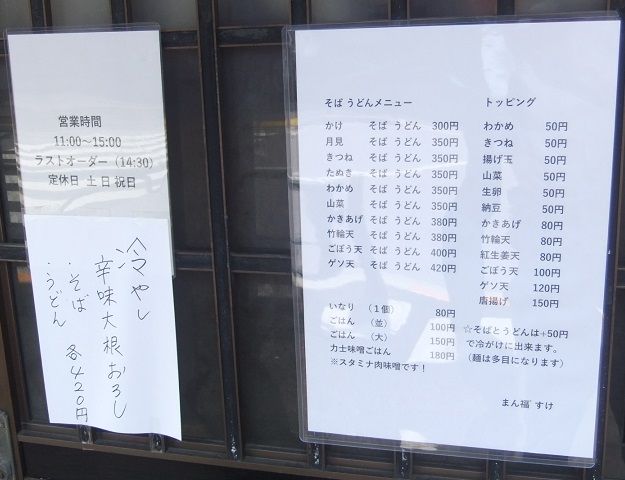 営業時間
11:00～15:00
ラストオーダー（14:30）
定休日 土 日 祝日
冷やし
辛味大根おろし
・そば
・うどん 各420円
そば うどんメニュー
かけ そば うどん 300円
月見 そば うどん 350円
きつね そば うどん 350円
たぬき そば うどん 350円
わかめ そば うどん 350円
山菜 そば うどん 350円
かきあげ そば うどん 380円
竹輪天 そば うどん 380円
ごぼう天 そば うどん 400円
ゲソ天 そば うどん 420円
いなり （1個） 80円
ごはん （並） 100円
ごはん （大） 150円
力士味噌ごはん 180円
※スタミナ肉味噌です！
トッピング
わかめ 50円
きつね 50円
揚げ玉 50円
山菜 50円
生卵 50円
納豆 50円
かきあげ 80円
竹輪天 80円
紅生姜天 80円
ごぼう天 100円
ゲソ天 120円
唐揚げ 150円
☆そばとうどんは+50円
で冷がけに出来ます。
（麺は多目になります）
まん福 すけ